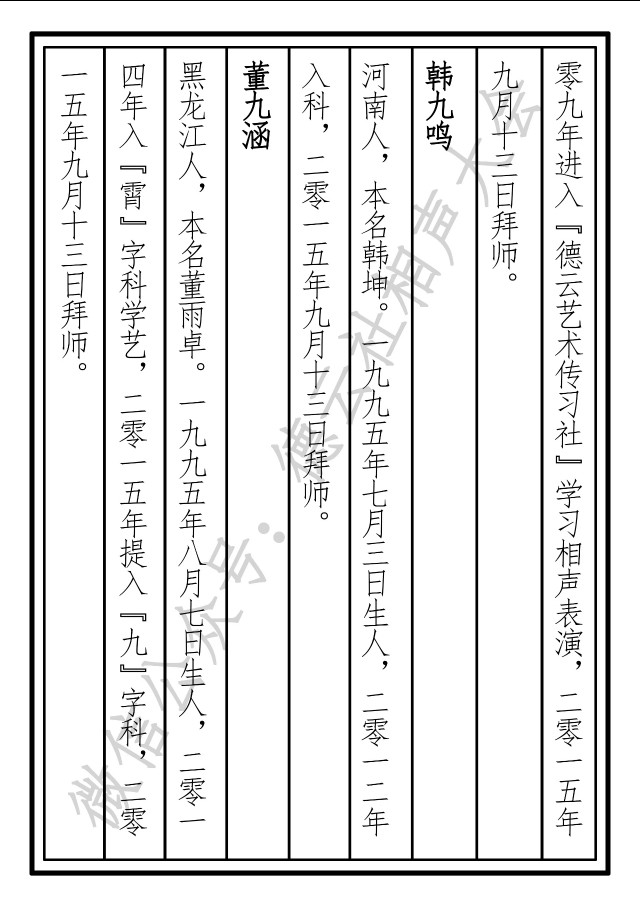 零九年进入『德云艺术传习社』学习相声表演，二零一五年
九月十三日拜师。
韩九鸣
河南人，本名韩坤。一九九五年七月三日生人，二零一二年
入科，二零一五年九月十三日拜师。
董九涵
黑龙江人，本名董雨卓。一九九五年八月七日生人，二零一
四年入『霄』字科学艺，二零一五年提入『九』字科，二零
一五年九月十三日拜师。
微信公众号：德云社相声大会